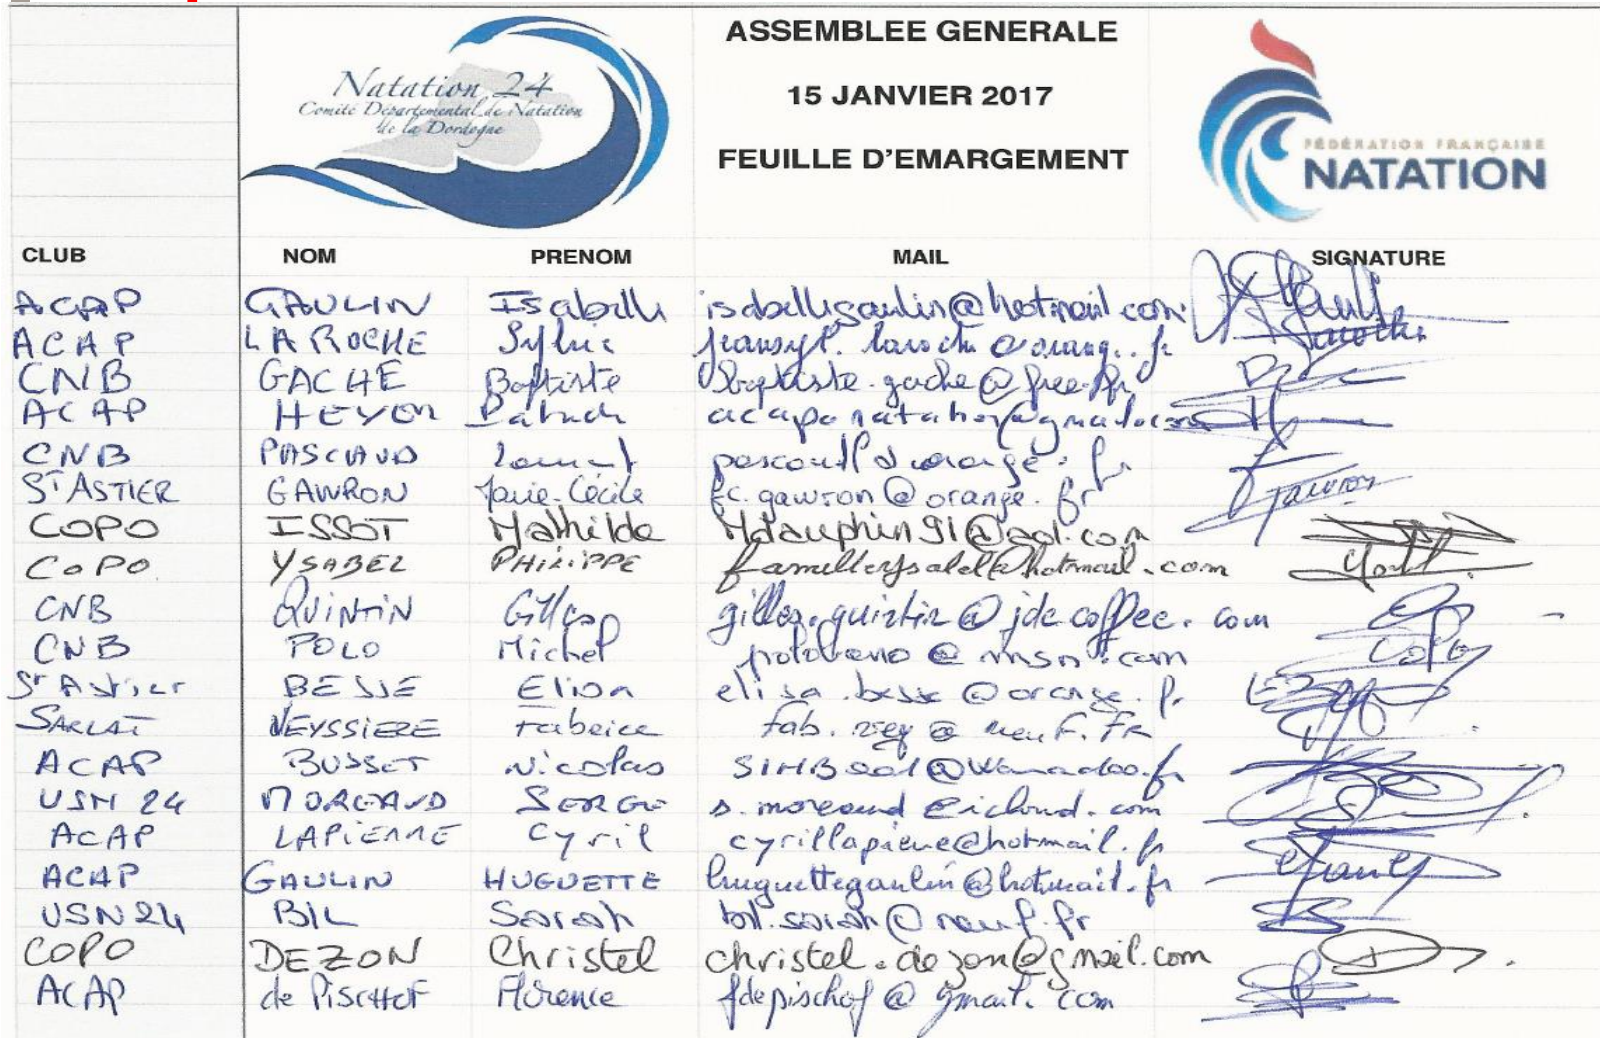 Natation 24
Comité Départemental de Natation
de la Dordogne
ASSEMBLEE GENERALE
15 JANVIER 2017
FEUILLE D'EMARGEMENT
FÉDÉRATION FRANÇAISE
NATATION
CLUB NOM PRENOM MAIL SIGNATURE
ACAP GAULIN Isabelle isabellegaulin@hotmail.com
ACAP LAROCHE Sylvie
CNB GACHE Baptiste baptiste.gache@free.fr
ACAP HEYON
CNB PASCAUD Laurent
ST ASTIER GAWRON Marie-Cécile fc.gawron@orange.fr
COPO ISSOT Mathilde Mdauphin91@aol.com
COPO YSABEL PHILIPPE
CNB QUINTIN Gilles gilles.quintin@jdecoffee.com
CNB POLO Michel
St Astier BESSE Elisa elisa.besse@orange.fr
SARLAT VEYSSIERE Fabrice fab.vey@neuf.FR
ACAP BUSSET Nicolas
USN 24 MOREAUD SERGE s.moreaud@icloud.com
ACAP LAPIERRE Cyril cyrillapierre@hotmail.fr
ACAP GAULIN HUGUETTE huguettegaulin@hotmail.fr
USN 24 BIL Sarah bil.sarah@neuf.fr
COPO DEZON Christel christel.dezon@gmail.com
ACAP de PISCHOF Florence fdepischof@gmail.com